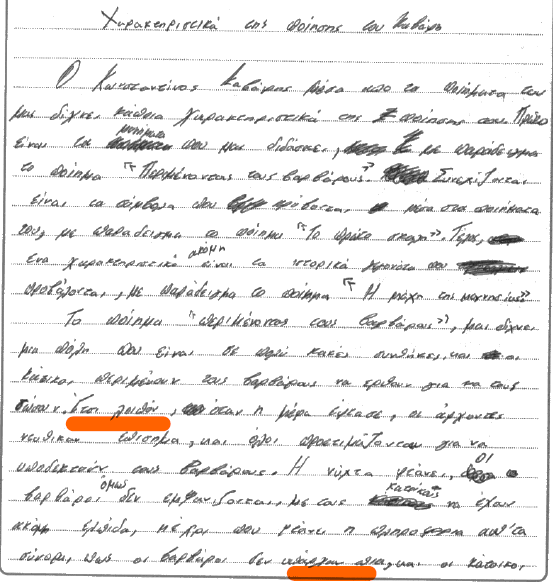 Χαρακτηριστικά της ποίησης του Καβάφη
Ο Κωνσταντίνος Καβάφης μέσα από τα ποιήματα του
μας δίχνει κάποια χαρακτηριστικά της ποίησης του. Πρώτο
είναι τα μηνήματα που μας διδάσκει, με παράδειγμα
το ποίημα "Περιμένοντας τους βαρβάρους". Συνεχίζοντας
είναι τα σύμβολα που κρύβοται μέσα στα ποιήματα
του, με παράδειγμα το ποίημα "Το πρώτο σκαλί". Τέλος,
ένα χαρακτηριστικό ακόμη είναι τα ιστορικά γεγονότα που
προβάλοται, με παράδειγμα το ποίημα "Η μάχη της μαγνησίας"
Το ποίημα "περιμένοντας τους βαρβάρους", μας δίχνει
μια πόλη που είναι σε πολύ κακές συνθήκες, και οι
κάτικοι περιμένουν τους βαρβάρους να έρθουν για να τους
σώσουν. Έτσι λοιπόν, όταν η μέρα έφτασε, οι άρχοντες
ντυθήκαν επίσημα, και όλοι προετιμάζονταν για να
υποδεκτούν τους βαρβάρους. Η νύχτα φτάνει, οι
βαρβάροι όμως δεν εμφανίζονται, με τους κατοίκους να έχουν
ακόμη ελπίδα, μέχρι που φτάνει η πληροφορία απ'τα
σύνορα, πως οι βαρβάροι δεν υπάρχουν πια, και οι κάτοικοι,